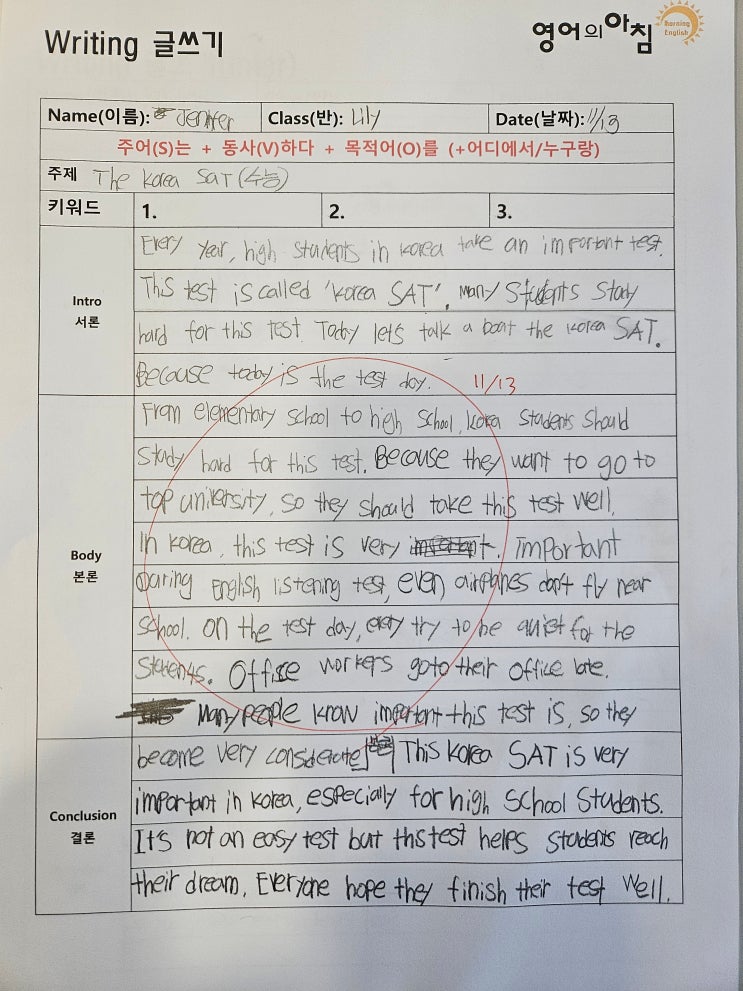 Writing 글쓰기
영어의아침
Morning English
Name(이름): Jenifer Class(반): Lily Date(날짜): 11/13
주어(S)는 + 동사(V)하다 + 목적어(O)를 (+어디에서/누구랑)
주제 The Korea SAT (수능)
키워드 1. 2. 3.
Intro
서론
Every year, high students in Korea take an important test.
This test is called 'Korea SAT'. Many Students Study
hard for this test. Today let's talk a boat the Korea SAT.
Because today is the test day. 11/13
Body
본론
From elementary school to high school, Korea students should
study hard for this test. Because they want to go to
top university, so they should take this test well.
In Korea, this test is very important. Important
During English listening test, even airplanes don't fly near
school. on the test day, every try to be quiet for the
Students. Office workers go to their office late.
Many people know important this test is, so they
become very considerate This Korea SAT is very
Conclusion
결론
important in Korea, especially for high school Students.
It's not an easy test but this test helps students reach
their dream. Everyone hope they finish their test well.